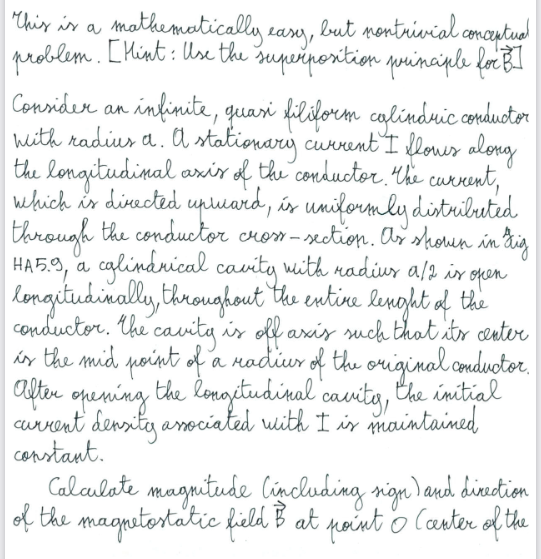 This is a mathematically easy, but nontrivial conceptual
problem. [Hint: Use the superposition principle for B⃗]
Consider an infinite, quasi filiform cylindric conductor
with radius a. A stationary current I flows along
the longitudinal axis of the conductor. The current,
which is directed upward, is uniformly distributed
through the conductor cross-section. As shown in Fig
HA5.9, a cylindrical cavity with radius a/2 is open
longitudinally, throughout the entire lenght of the
conductor. The cavity is off axis such that its center
is the mid point of a radius of the original conductor.
After opening the longitudinal cavity, the initial
current density associated with I is maintained
constant.
Calculate magnitude (including sign) and direction
of the magnetostatic field B⃗ at point O (center of the